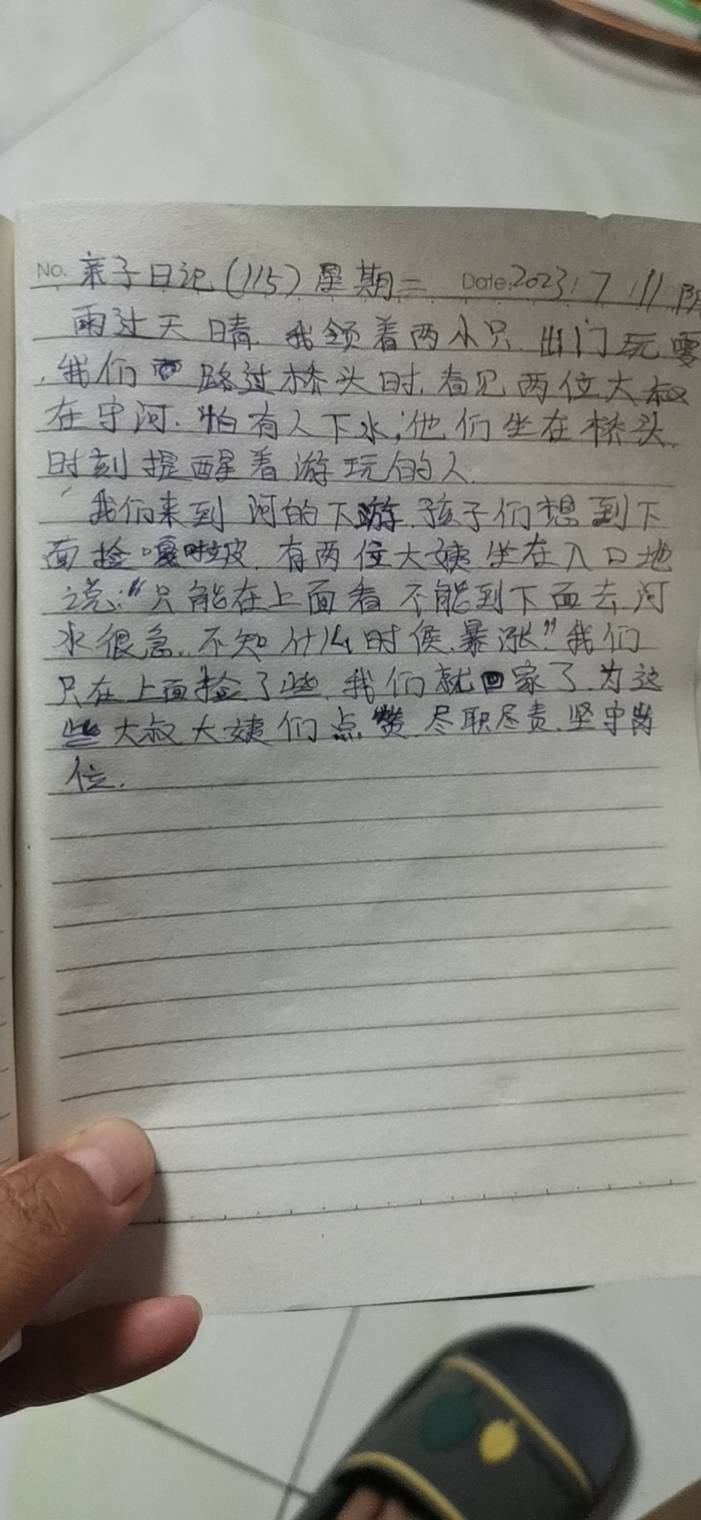 No. 亲子日记(115)星期二 Date. 2023.7.11 阴
雨过天晴,我领着两小只,出门玩耍
,我们路过桥头时,看见两位大叔
在守河.怕有人下水,他们坐在桥头
时刻提醒着游玩的人.
我们来到河的下游.孩子们想到下
面捡嘎啦,有两位大姨坐在入口地
说:“只能在上面看不能到下面去,河
水很急,不知什么时候暴涨”我们
只在上面捡了些,我们就回家了为这
些大叔大姨们点赞.尽职尽责.坚守岗
位.